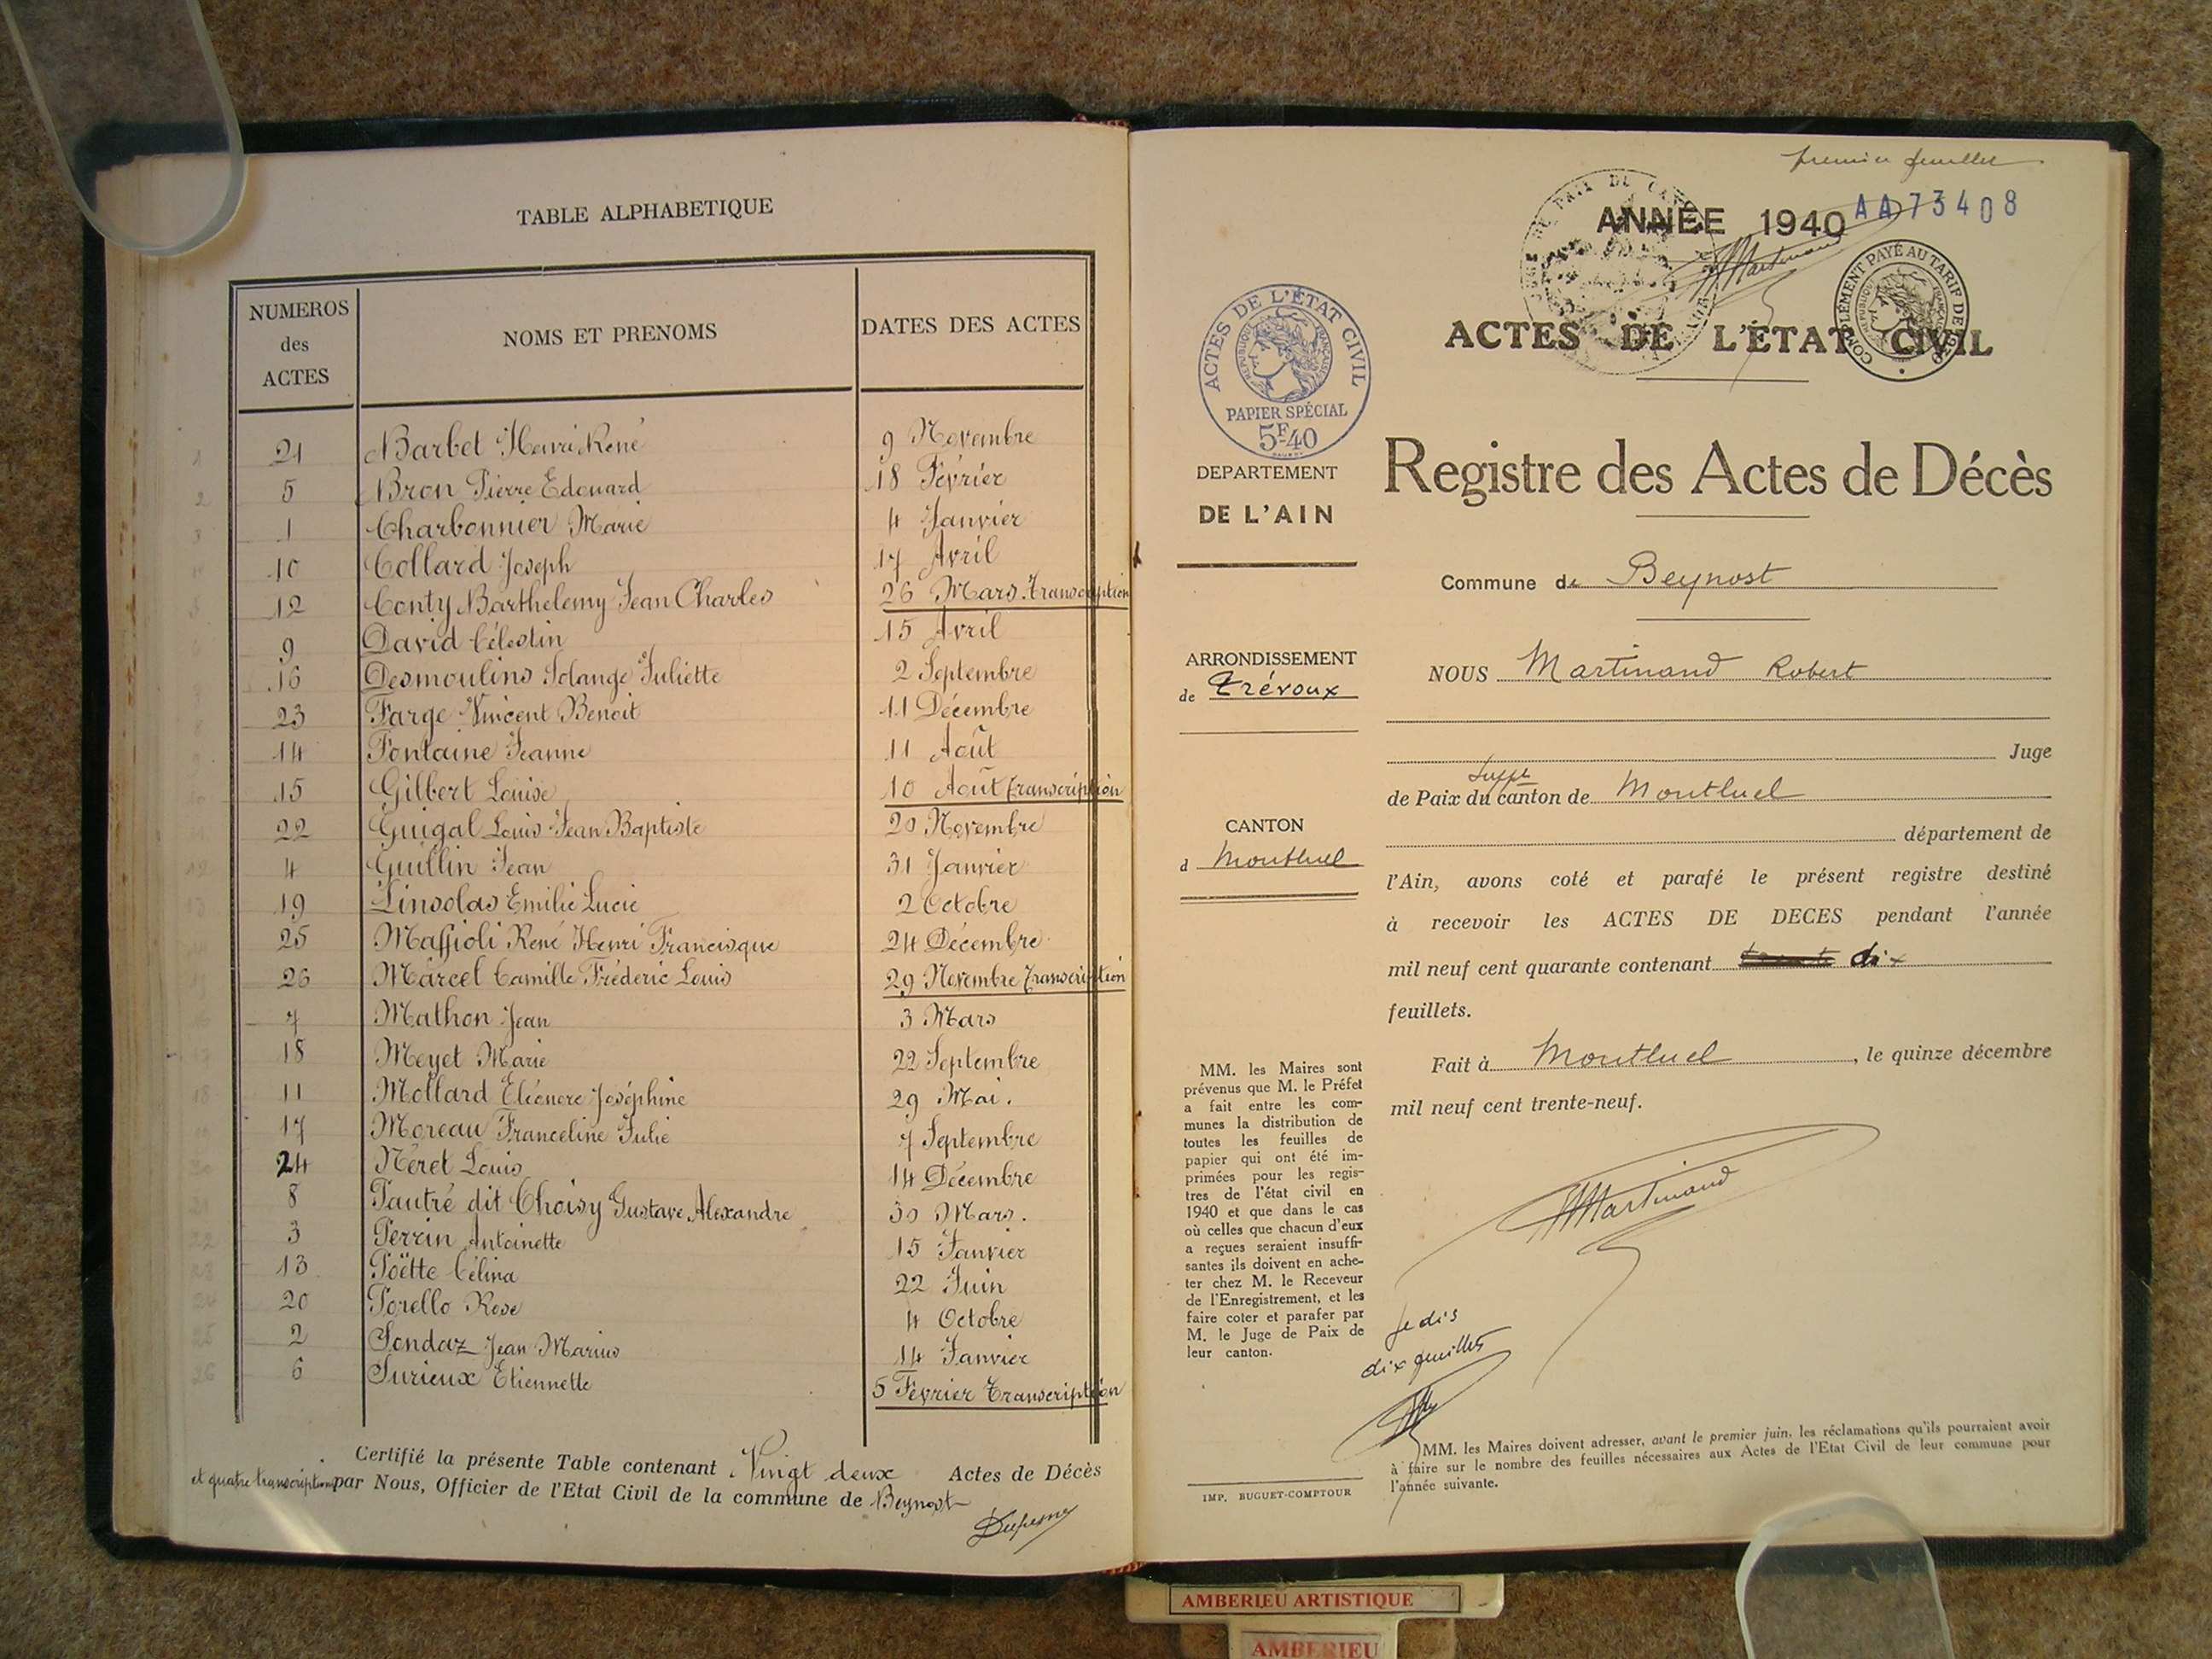 TABLE ALPHABETIQUE
NUMEROS
des
ACTES
NOMS ET PRENOMS
DATES DES ACTES
21 Barbet Henri René 9 Novembre
5 Bron Pierre Edouard 18 Février
1 Charbonnier Marie 4 Janvier
10 Collard Joseph 17 Avril
12 Conty Barthelemy Jean Charles 26 Mars. transcription
9 David Célestin 15 Avril
16 Desmoulins Solange Juliette 2 Septembre
23 Farge Vincent Benoit 11 Décembre
14 Fontaine Jeanne 11 Août
15 Gilbert Louise 10 Août transcription
22 Guigal Louis Jean Baptiste 20 Novembre
4 Guillin Jean 31 Janvier
19 Linsolas Emilie Lucie 2 Octobre
25 Massioli René Henri Francisque 24 Décembre
26 Marcel Camille Fréderic Louis 29 Novembre transcription
7 Mathon Jean 3 Mars
18 Meyet Marie 22 Septembre
11 Mollard Eléonore Joséphine 29 Mai.
17 Moreau Franceline Julie 7 Septembre
24 Néret Louis 14 Décembre
8 Pautré dit Choisy Gustave Alexandre 30 Mars.
3 Perrin Antoinette 15 Janvier
13 Poëtte Célina 22 Juin
20 Porello Rose 4 Octobre
2 Sondaz Jean Marius 14 Janvier
6 Surieux Etiennette 5 Février transcription
Certifié la présente Table contenant Vingt deux Actes de Décès
et quatre transcriptions par Nous, Officier de l'Etat Civil de la commune de Beynost
premier feuillet
ANNÉE 1940 AA73408
Martinand
ACTES DE L'ÉTAT CIVIL
COMPLÉMENT PAYÉ AU TARIF DE
REPUBLIQUE FRANÇAISE
ACTES DE L'ÉTAT CIVIL
REPUBLIQUE FRANÇAISE
PAPIER SPÉCIAL
5F40
DEPARTEMENT
DE L'AIN
ARRONDISSEMENT
de Trévoux
CANTON
d Montluel
MM. les Maires sont
prévenus que M. le Préfet
a fait entre les com-
munes la distribution de
toutes les feuilles de
papier qui ont été im-
primées pour les regis-
tres de l'état civil en
1940 et que dans le cas
où celles que chacun d'eux
a reçues seraient insuffi-
santes ils doivent en ache-
ter chez M. le Receveur
de l'Enregistrement, et les
faire coter et parafer par
M. le Juge de Paix de
leur canton.
IMP. BUGUET-COMPTOUR
Registre des Actes de Décès
Commune de Beynost
NOUS Martinand Robert
Juge
Suppt
de Paix du canton de Montluel
département de
l'Ain, avons coté et parafé le présent registre destiné
à recevoir les ACTES DE DECES pendant l'année
mil neuf cent quarante contenant dix
feuillets.
Fait à Montluel, le quinze décembre
mil neuf cent trente-neuf.
Martinand
Je dis
dix feuillets
MM. les Maires doivent adresser, avant le premier juin, les réclamations qu'ils pourraient avoir
à faire sur le nombre des feuilles nécessaires aux Actes de l'Etat Civil de leur commune pour
l'année suivante.
AMBERIEU ARTISTIQUE
AMBERIEU